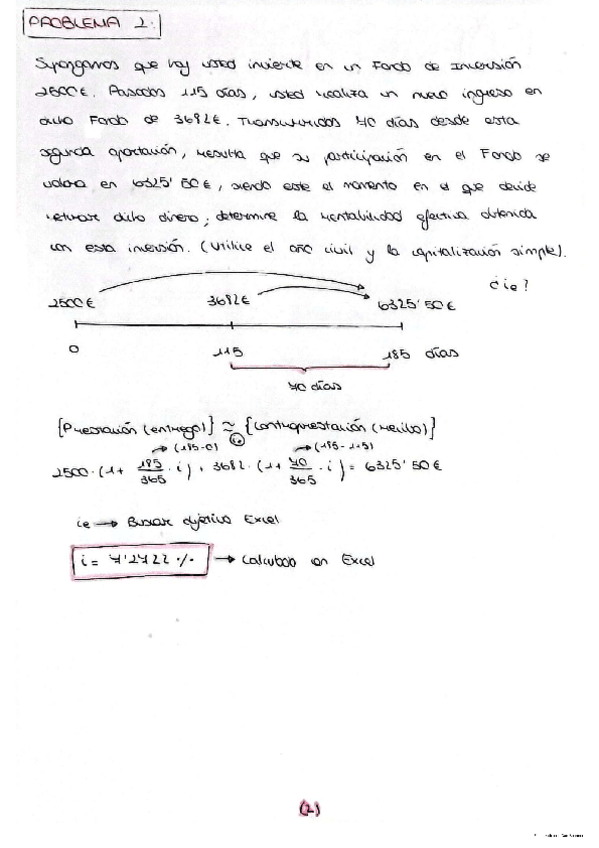 PROBLEMA 2:
Supongamos que hoy usted invierte en un Fondo de Inversión
2500€. Pasados 115 días, usted realiza un nuevo ingreso en
dicho Fondo de 3682€. Transcurridos 70 días desde esta
segunda aportación, resulta que su participación en el Fondo se
valora en 6325'50€, siendo este el momento en el que decide
retirar dicho dinero; determine la rentabilidad efectiva obtenida
con esta inversión. (Utilice el año civil y la capitalización simple).
¿ie?
2500€ 3682€ 6325'50€
0 115 185 días
70 días
{Prestación (entrego)} ≈ {Contraprestación (recibo)}
ie
→ (185-0) → (185-115)
2500·(1+ 185/365 · i) + 3682·(1+ 70/365 · i) = 6325'50€
ie → Buscar objetivo Excel
i = 7'2722 ·/· → Calculado en Excel
(2)